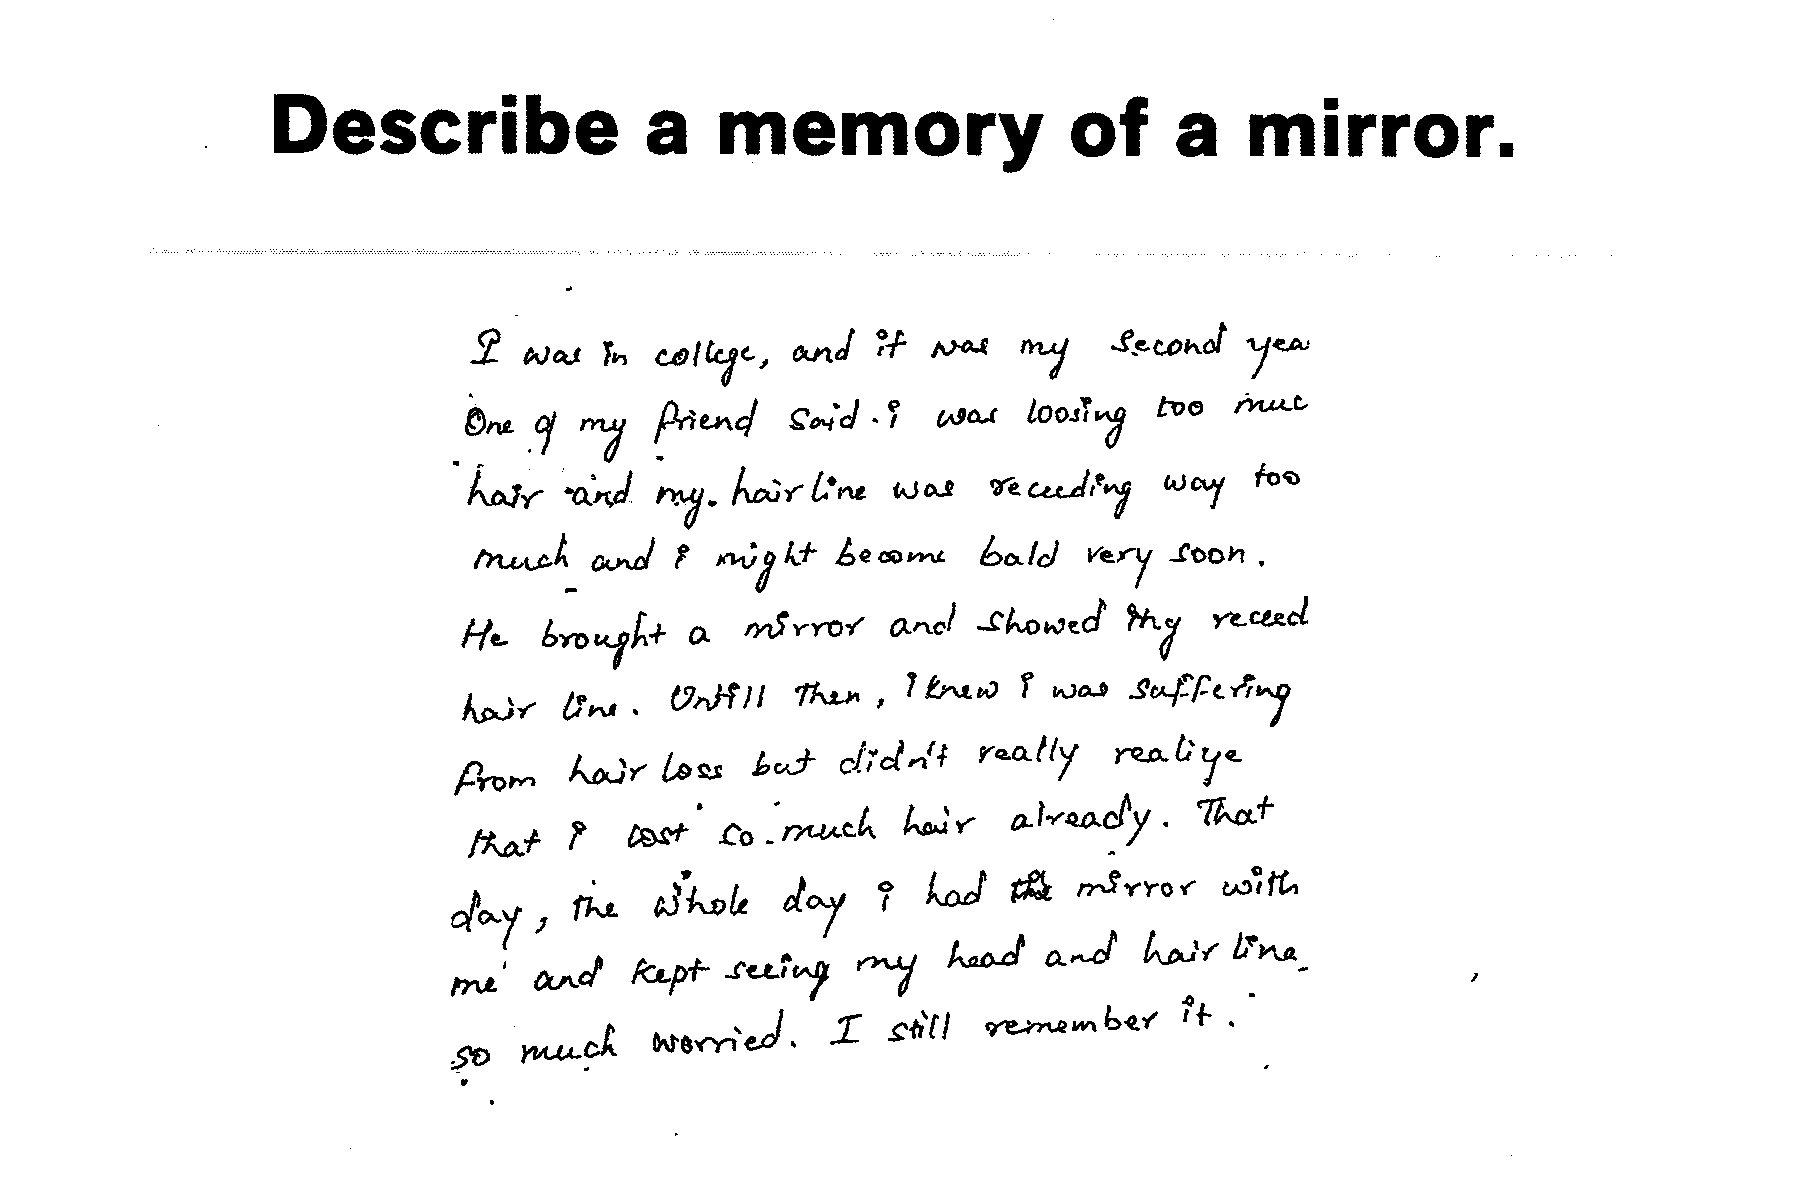 Describe a memory of a mirror.
I was in college, and it was my second yea
One of my friend said i was loosing too muc
hair and my hair line was receeding way too
much and i might become bald very soon.
He brought a mirror and showed my receed
hair line. Untill then, i knew i was suffering
from hair loss but didn't really realize
that i lost so much hair already. That
day, the whole day i had the mirror with
me and kept seeing my head and hair line
so much worried. I still remember it.